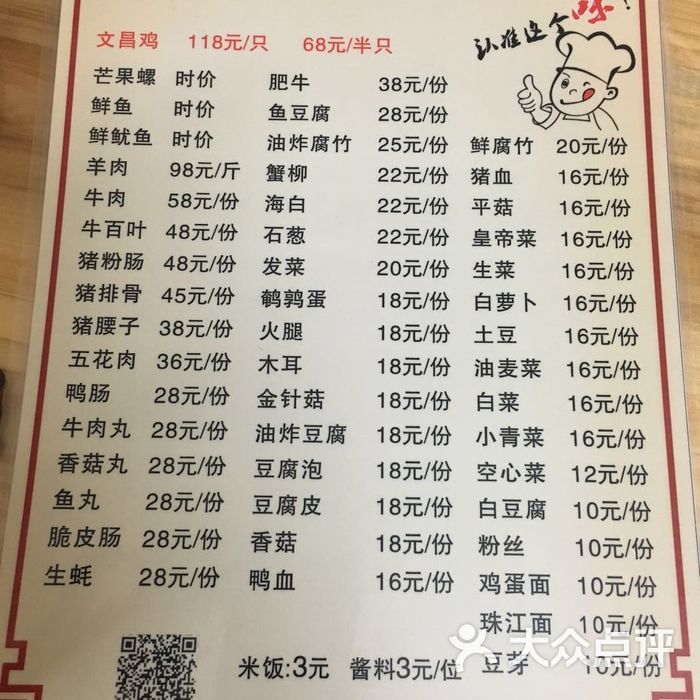 认准这个味!
文昌鸡 118元/只 68元/半只
芒果螺 时价
鲜鱼 时价
鲜鱿鱼 时价
羊肉 98元/斤
牛肉 58元/份
牛百叶 48元/份
猪粉肠 48元/份
猪排骨 45元/份
猪腰子 38元/份
五花肉 36元/份
鸭肠 28元/份
牛肉丸 28元/份
香菇丸 28元/份
鱼丸 28元/份
脆皮肠 28元/份
生蚝 28元/份
肥牛 38元/份
鱼豆腐 28元/份
油炸腐竹 25元/份
蟹柳 22元/份
海白 22元/份
石葱 22元/份
发菜 20元/份
鹌鹑蛋 18元/份
火腿 18元/份
木耳 18元/份
金针菇 18元/份
油炸豆腐 18元/份
豆腐泡 18元/份
豆腐皮 18元/份
香菇 18元/份
鸭血 16元/份
鲜腐竹 20元/份
猪血 16元/份
平菇 16元/份
皇帝菜 16元/份
生菜 16元/份
白萝卜 16元/份
土豆 16元/份
油麦菜 16元/份
白菜 16元/份
小青菜 16元/份
空心菜 12元/份
白豆腐 10元/份
粉丝 10元/份
鸡蛋面 10元/份
珠江面 10元/份
豆芽 10元/份
米饭:3元 酱料3元/位
大众点评